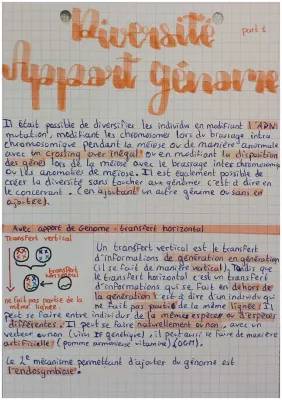 part 1
Diversité
Apport génome
Il était possible de diversifier les individu en modifiant l'ADN
mutation, modifiant les chromosomes lors du brassage intra
chromosomique pendant la méiose ou de manière anormale
avec un crossing over inégal ou en modifiant la disposition
des gènes lors de la méiose avec le brassage inter chromosomique
ou les anomalies de méiose. Il est également possible de
créer la diversité sans toucher aux génomes c'est à dire en
le conservant. (en ajoutant un autre génome ou sans en
ajoutée).
Avec apport de Genome - transfert horizontal
Transfert vertical
transfert
horizontal
ne fait pas partie de la
même lignée
Un transfert vertical est le transfert
d'informations de génération en génération
(il se fait de manière vertical). Tandis que
le transfert horizontal c'est un transfert
d'informations qui se fait en dehors de
la génération c'est à dire d'un individu qui
ne fait pas partie de la même lignée. Il
peut se faire entre individus de la même espèce ou d'espèces
différentes. Il peut se faire naturellement ou non, avec un
vecteur ou non (virus If génétique), il peut aussi se faire de manière
artificielle (pomme arménienne vitamine) (OGM).
Le 2e mécanisme permettant d'ajouter du génome est
l'endosymbiose.